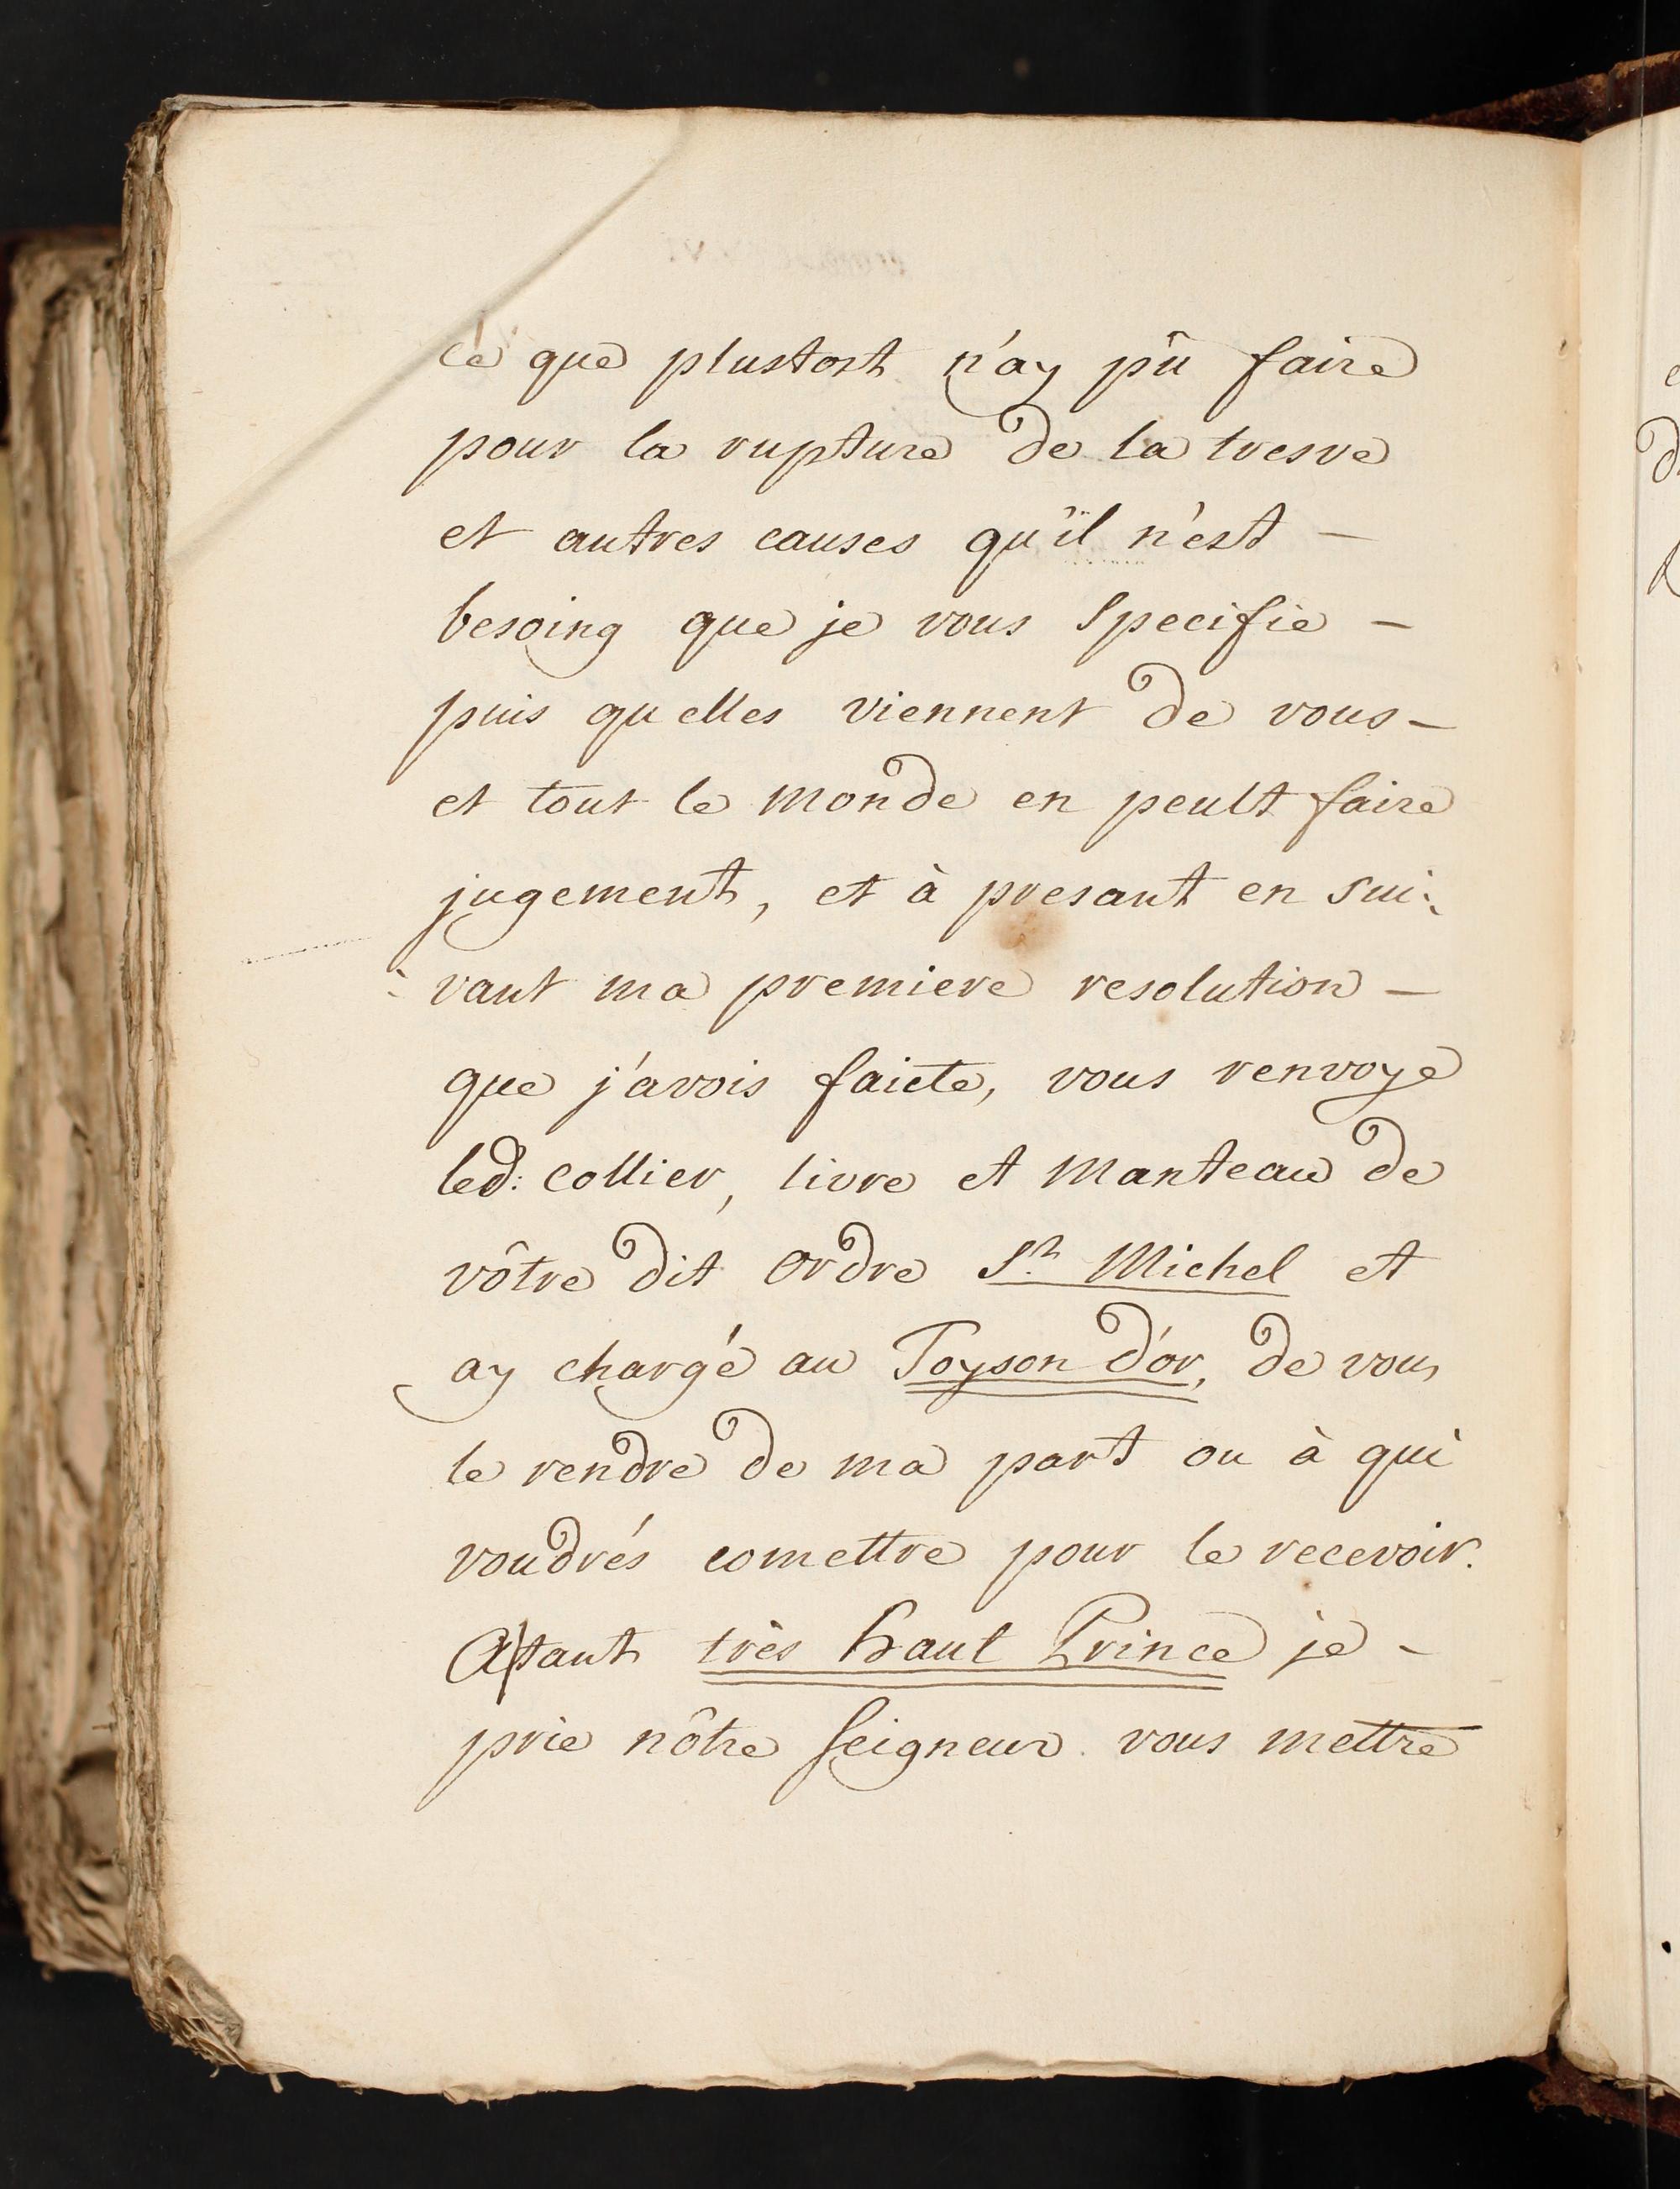 ce que plustost n'ay pû faire
pour la rupture de la tresve
et autres causes qu'il n'est —
besoing que je vous specifie —
puis qu elles viennent de vous —
et tout le monde en peult faire
jugement, et à presant en sui:
vant ma premiere resolution —
que j'avois faicte, vous renvoye
led: collier, livre et manteau de
vôtre dit ordre St. Michel et
ay chargé au Toyson d'or, de vous
le rendre de ma part ou à qui
voudrés comettre pour le recevoir.
A tant très haut Prince je —
prie nôtre seigneur vous mettre